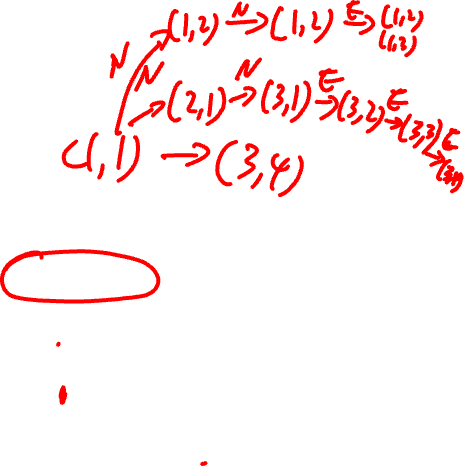 N (1,2) N→ (1,2) E→ (1,2)
(1,3)
N → (2,1) N→ (3,1) E→ (3,2) E→ (3,3) E→ (3,4)
(1,1) → (3,4)